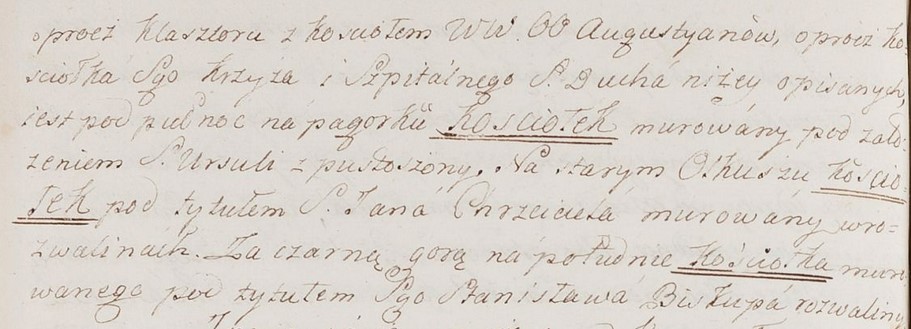 oprocź klasztoru z kościołem WW. OO Augustyanów, oprocż ko
sciołka Sgo krzyża i Szpitálnego S. Duchá niżey opisanych,
iest pod pułnoc ná pagorkú kościołek murowány pod zało-
żeniem S. Ursuli z pustoszony. Na starym Olkuszu kościo-
łek pod tytułem S. Janá Chrzciciela murowány w ro=
zwalinach. Za czarną górą ná południe kościołka muro
wanego pod tytułem Sgo Stanisława Biskupá rozwaliny